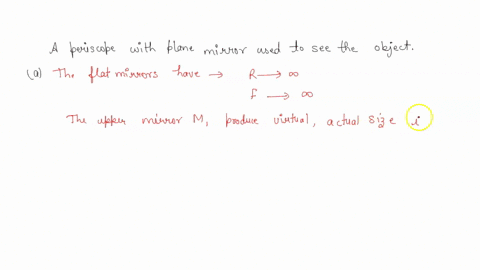 A periscope with plane mirror used to see the object.
(a) The flat mirrors have → R → ∞
F → ∞
The upper mirror M, produce virtual, actual size i